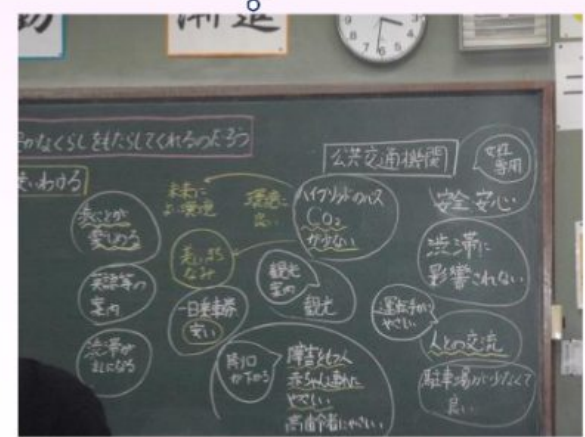 漸進
かなくらしをもたらしてくれるのだろう
使いわける
公共交通機関
女性
専用
安全安心
渋滞に
影響されない
運転手が
やさしい
人との交流
駐車場が少なくて
良い
ハイブリッドのバス
CO₂
が少ない
環境に
良い
未来に
良い環境
美しいまち
なみ
歩くことが
楽しめる
英語等の
案内
渋滞が
一日乗車券
安い
観光
案内
観光
降り口
が下がる
障害をもつ人
赤ちゃん連れに
やさしい
高齢者にやさしい